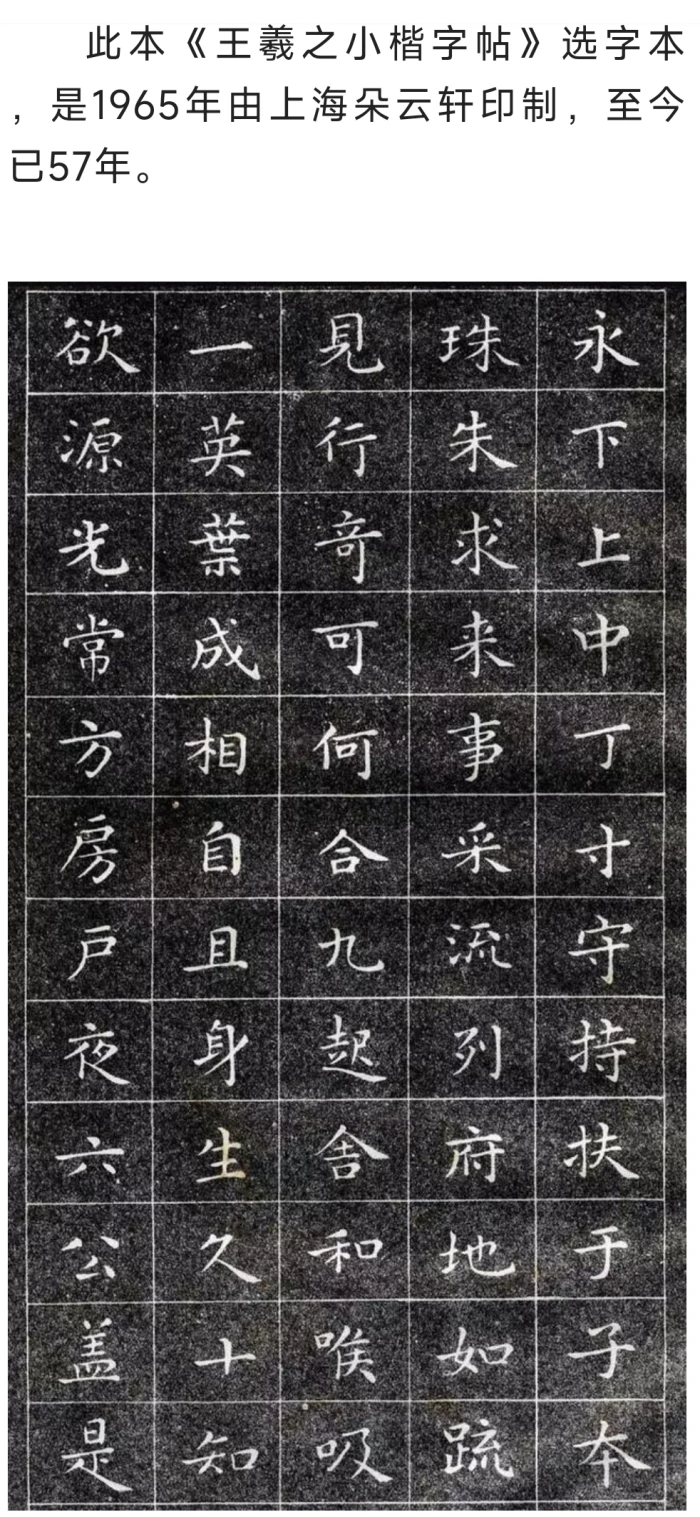 此本《王羲之小楷字帖》选字本
，是1965年由上海朵云轩印制，至今
已57年。
永下上中丁寸守持扶于子本
珠朱求来事采流列府地如疏
見行奇可何合九起舍和喉吸
一英葉成相自且身生久十知
欲源光常方房戸夜六公盖是